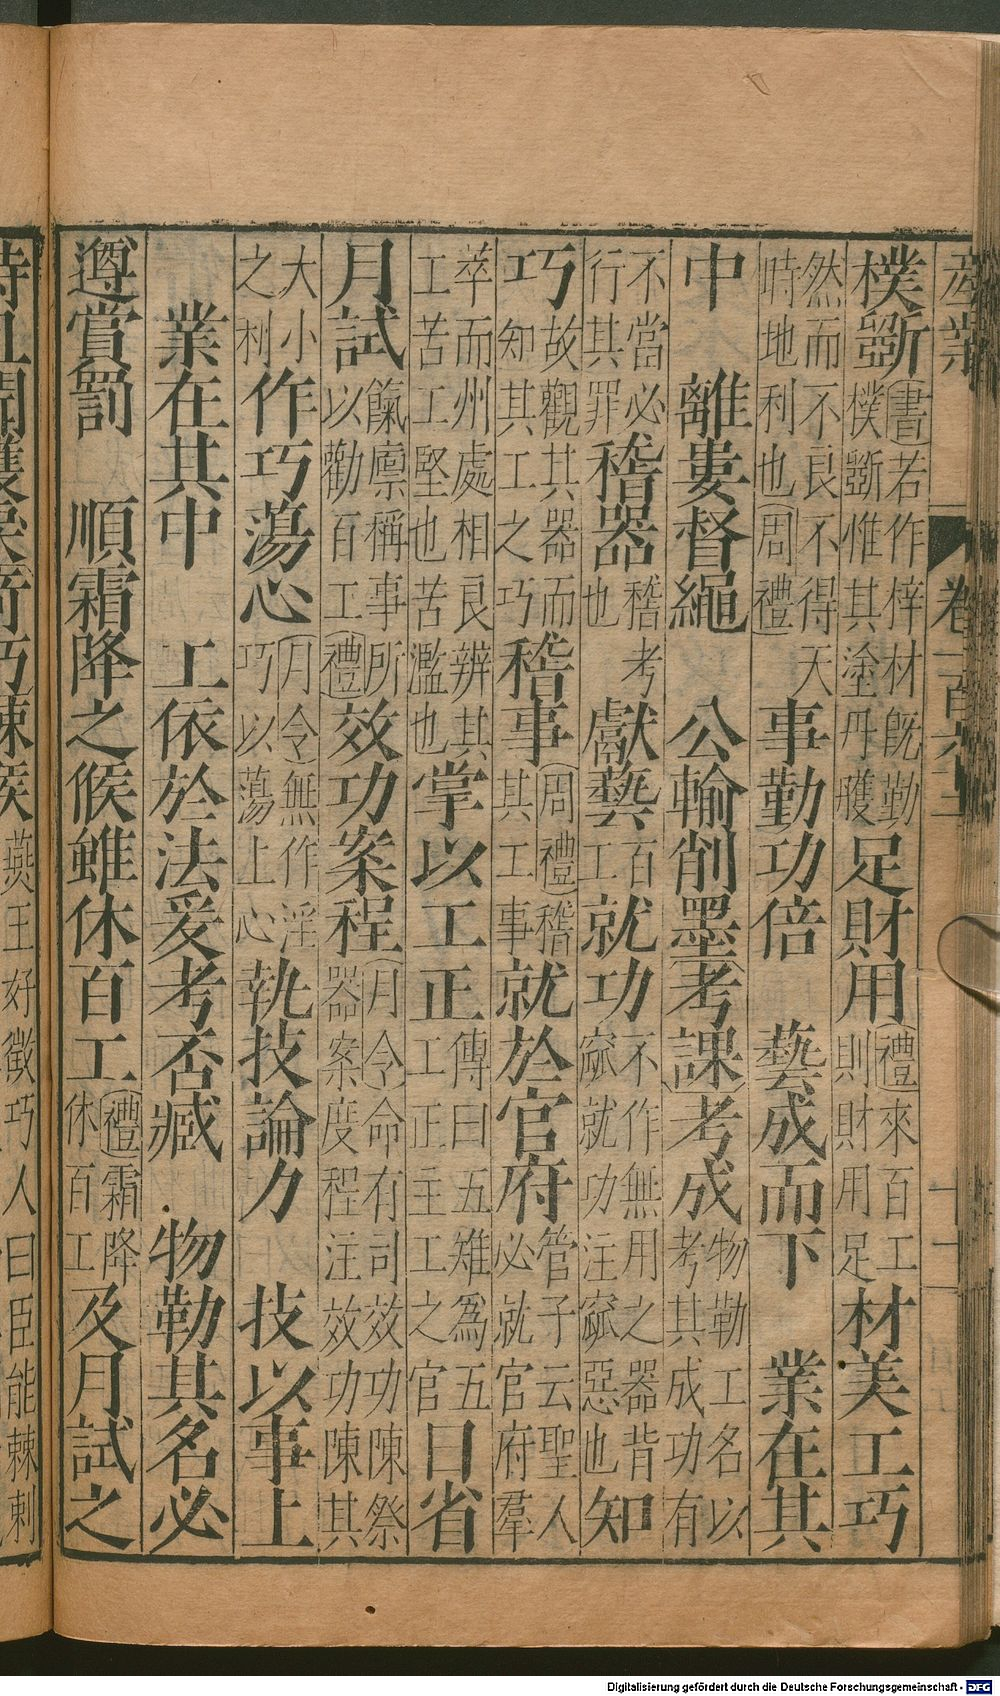 產業 卷一百六
樸斲書若作梓材旣勤樸斲惟其塗丹雘足財用禮來百工則財用足材美工巧
然而不良不得天時地利也周禮事勤功倍 藝成而下 業在其
中 離婁督繩 公輸削墨考課考成物勒工名以考其成功有
不當必行其罪稽器稽考也獻藝百工就功不作無用之器皆窳就功注窳惡也知
巧故觀其器而知其工之巧稽事周禮稽其工事就於官府管子云聖人必就官府羣
萃而州處相良辨其工苦工堅也苦濫也掌以工正傳曰五雉為五工正工正主工之官日省
月試餼廩稱事所以勸百工禮效功案程月令命有司效功陳祭器案度程注效功陳其
大小之利作巧蕩心月令無作淫巧以蕩上心執技論力 技以事上
業在其中 工依於法爰考否臧 物勒其名必
遵賞罰 順霜降之候雖休百工禮霜降休百工及月試之
燕王好徵巧人曰臣能棘刺
Digitalisierung gefördert durch die Deutsche Forschungsgemeinschaft - DFG